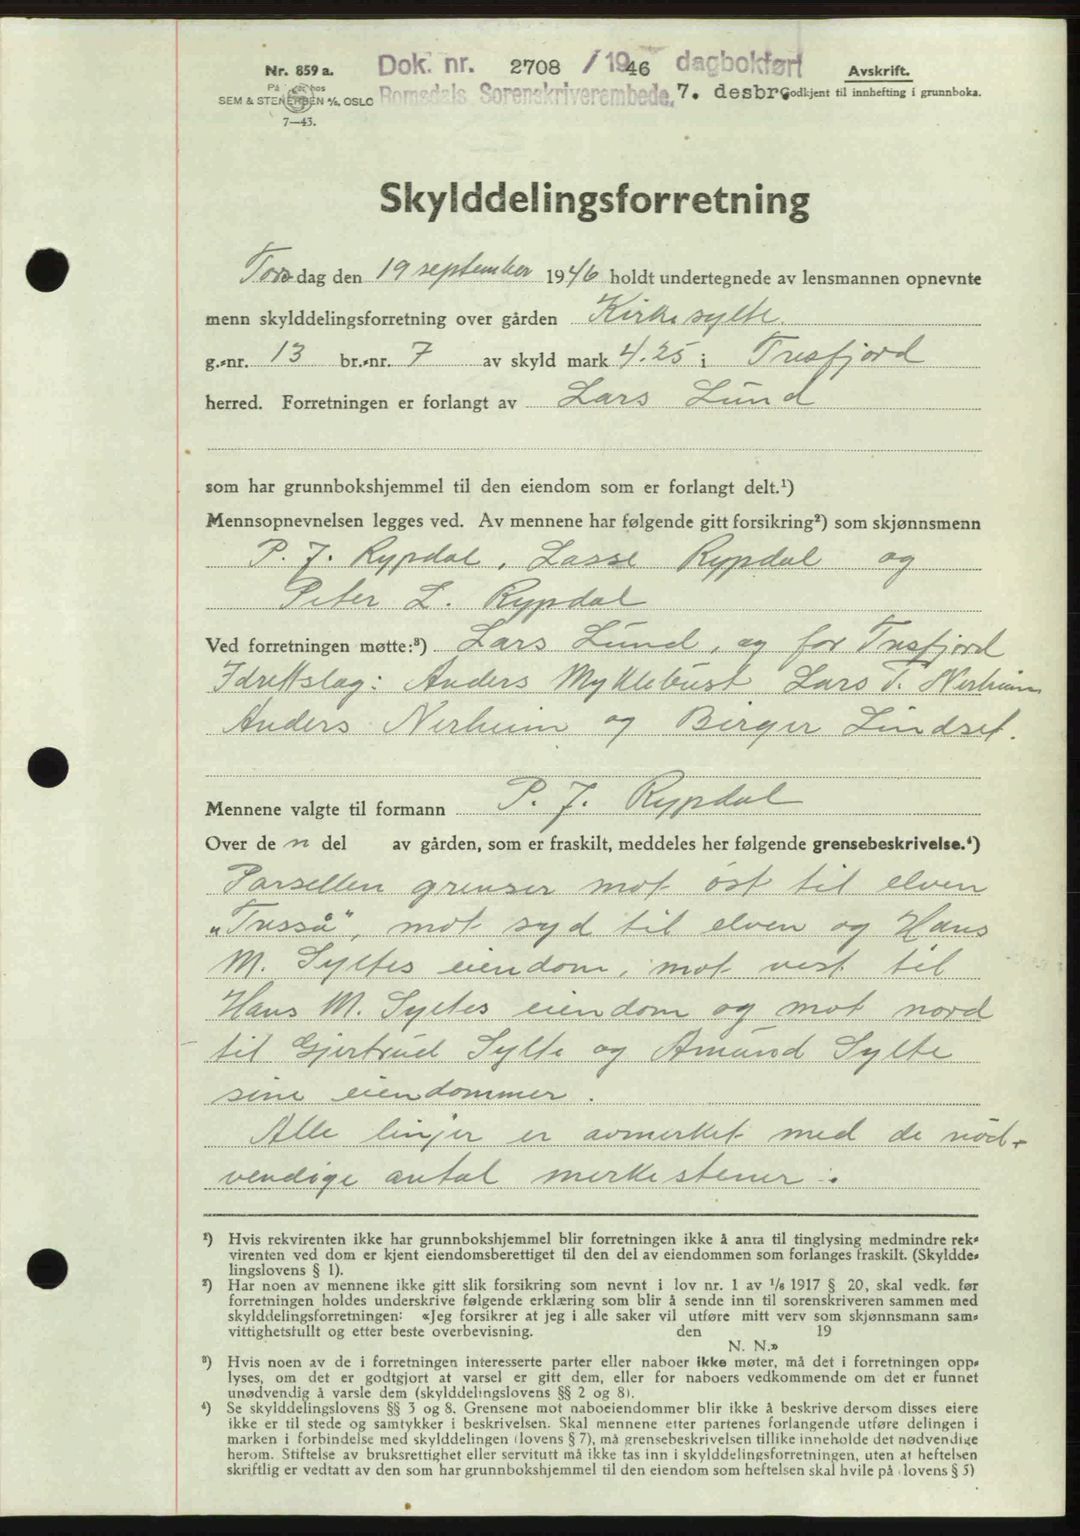 Nr. 859 a.
På hos
SEM & STENERSEN A/S, OSLO
7—43.
Dok. nr. 2708 / 1946 dagbokført
Romsdals Sorenskriverembede, 7. desbr.
Avskrift.
Godkjent til innhefting i grunnboka.
Skylddelingsforretning
Torsdag den 19 september 1946 holdt undertegnede av lensmannen opnevnte
menn skylddelingsforretning over gården Kirkesylte
g.-nr. 13 br.-nr. 7 av skyld mark 4.25 i Tresfjord
herred. Forretningen er forlangt av Lars Lund
som har grunnbokshjemmel til den eiendom som er forlangt delt.¹)
Mennsopnevnelsen legges ved. Av mennene har følgende gitt forsikring²) som skjønnsmenn
P. J. Rypdal, Lasse Rypdal og
Peter L. Rypdal
Ved forretningen møtte:³) Lars Lund, og for Tresfjord
Idrettslag: Anders Myklebust Lars T. Nerheim
Anders Nerheim og Birger Lindset.
Mennene valgte til formann P. J. Rypdal
Over de n del av gården, som er fraskilt, meddeles her følgende grensebeskrivelse.⁴)
Parsellen grenser mot øst til elven
„Tusså", mot syd til elven og Hans
M. Syltes eiendom, mot vest til
Hans M. Syltes eiendom og mot nord
til Gjertrud Sylte og Amund Sylte
sine eiendommer.
Alle linjer er avmerket med de nöd-
vendige antal merkestener.
¹) Hvis rekvirenten ikke har grunnbokshjemmel blir forretningen ikke å anta til tinglysing medmindre rek-
virenten ved dom er kjent eiendomsberettiget til den del av eiendommen som forlanges fraskilt. (Skyldde-
lingslovens § 1).
²) Har noen av mennene ikke gitt slik forsikring som nevnt i lov nr. 1 av ¹/₆ 1917 § 20, skal vedk. før
forretningen holdes underskrive følgende erklæring som blir å sende inn til sorenskriveren sammen med
skylddelingsforretningen: «Jeg forsikrer at jeg i alle saker vil utføre mitt verv som skjønnsmann sam-
vittighetsfullt og etter beste overbevisning. den 19
N. N.»
³) Hvis noen av de i forretningen interesserte parter eller naboer ikke møter, må det i forretningen opp-
lyses, om det er godtgjort at varsel er gitt dem, eller for naboers vedkommende om det er funnet
unødvendig å varsle dem (skylddelingslovens §§ 2 og 8).
⁴) Se skylddelingslovens §§ 3 og 8. Grensene mot naboeiendommer blir ikke å beskrive dersom disses eiere
ikke er til stede og samtykker i beskrivelsen. Skal mennene etter partenes forlangende utføre delingen i
marken i forbindelse med skylddelingen (lovens § 7), må grensebeskrivelsen tillike inneholde det nødvendige
herom. Stiftelse av bruksrettighet eller servitutt må ikke tas inn i skylddelingsforretningen, uten at heftelsen
skriftlig er vedtatt av den som har grunnbokshjemmel til den eiendom som heftelsen skal hvile på (lovens § 5)